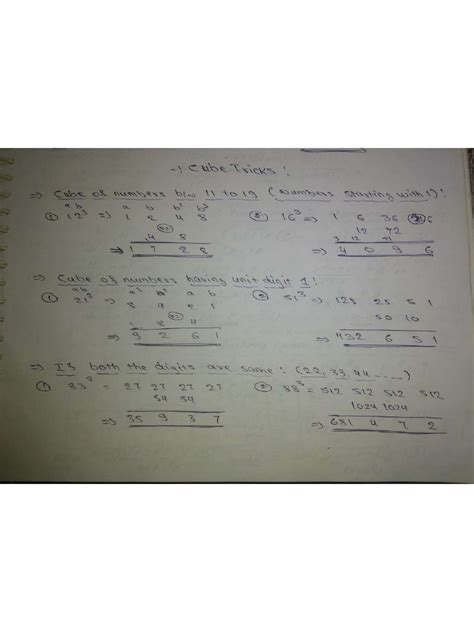 -: Cube Tricks :
⇒ Cube of numbers b/w 11 to 19 ( Numbers starting with 1) :
a b a b b² b³
① 12³ ⇒ 1 2 4 8 ② 16³ ⇒ 1 6 36
4 8 12 72
⇒ 1 7 2 8 ⇒ 4 0 9 6
⇒ Cube of numbers having unit digit 1 :
a b
① 21³ ⇒ 8 4 2 1 ② 51³ ⇒ 125 25 5 1
8 4 50 10
⇒ 9 2 6 1 ⇒ 132 6 5 1
⇒ If both the digits are same : (22, 33, 44 ----)
① 33² = 27 27 27 27 ② 88³ = 512 512 512 512
54 54 1024 1024
⇒ 35 9 3 7 ⇒ 681 4 7 2